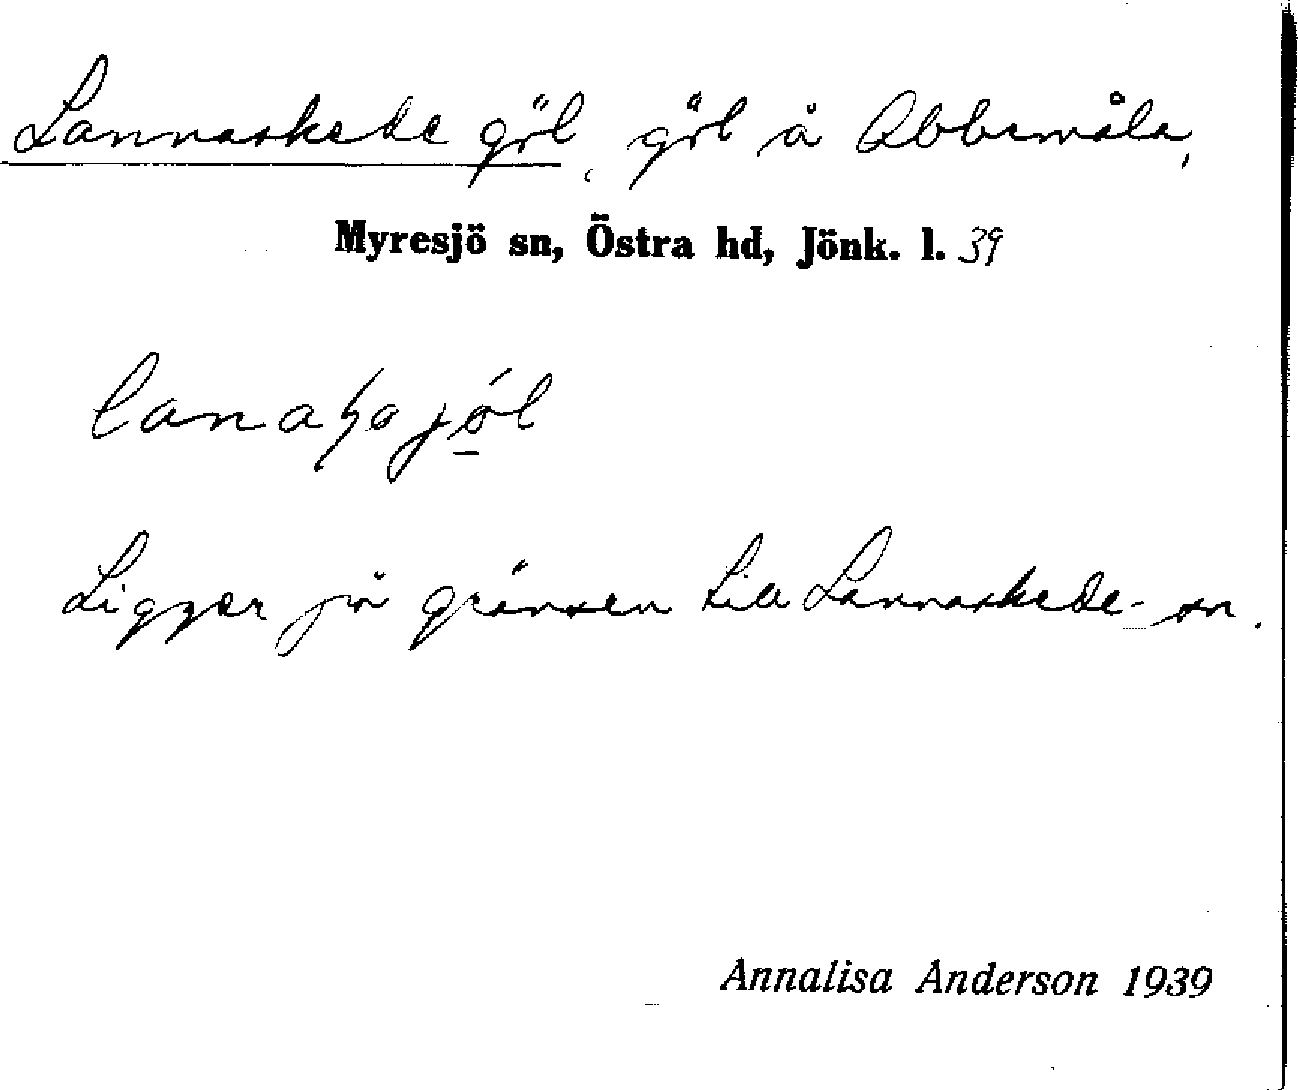 Lannaskede göl, göl å Abbemåla,
Myresjö sn, Östra hd, Jönk. l. 39
Ligger på gränsen till Lannaskede sn.
Annalisa Anderson 1939